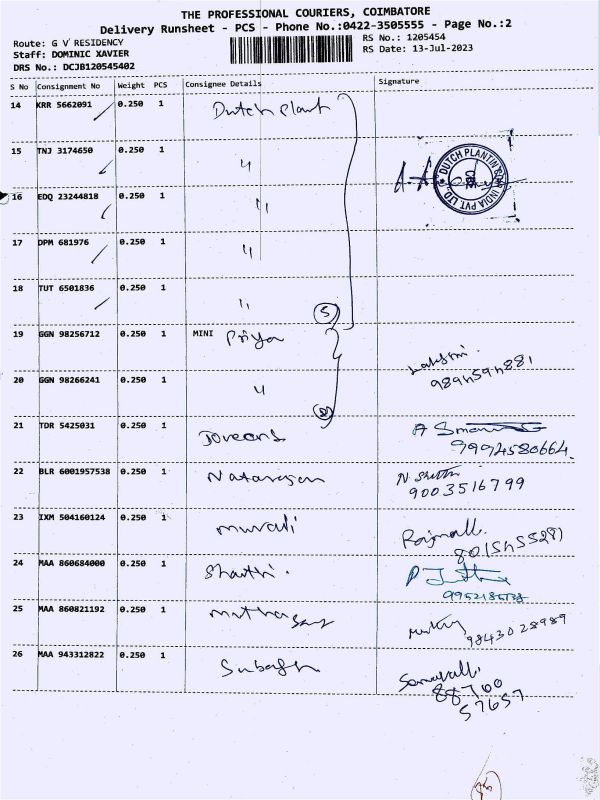 THE PROFESSIONAL COURIERS, COIMBATORE
Delivery Runsheet - PCS - Phone No.:0422-3505555 - Page No.:2
Route: G V RESIDENCY
RS No.: 1205454
Staff: DOMINIC XAVIER
RS Date: 13-Jul-2023
DRS No.: DCJB120545402
S No Consignment No Weight PCS Consignee Details Signature
14 KRR 5662091 0.250 1 Dutch Plant
15 TNJ 3174650 0.250 1 "
DUTCH PLANTIN COIR INDIA PVT LTD.
CBE
16 EDQ 23244818 0.250 1 "
17 DPM 681976 0.250 1 "
18 TUT 6501836 0.250 1 "
5
19 GGN 98256712 0.250 1 MINI Priya
Lakshmi.
20 GGN 98266241 0.250 1 "
2
21 TDR 5425031 0.250 1
9994580664
22 BLR 6001957538 0.250 1 Natarajan
9003516799
23 IXM 504160124 0.250 1 Murali
24 MAA 860684000 0.250 1 Shanthi.
25 MAA 860821192 0.250 1
9843028989
26 MAA 943312822 0.250 1
88700
57657